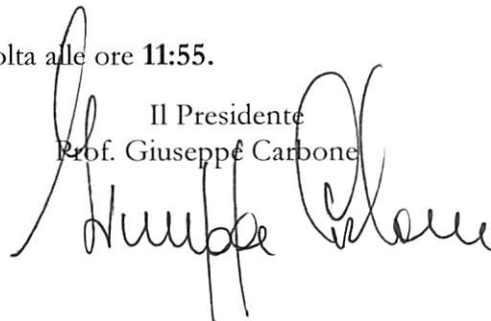 olta alle ore 11:55.
Il Presidente
Prof. Giuseppe Carbone
Giuseppe Carbone